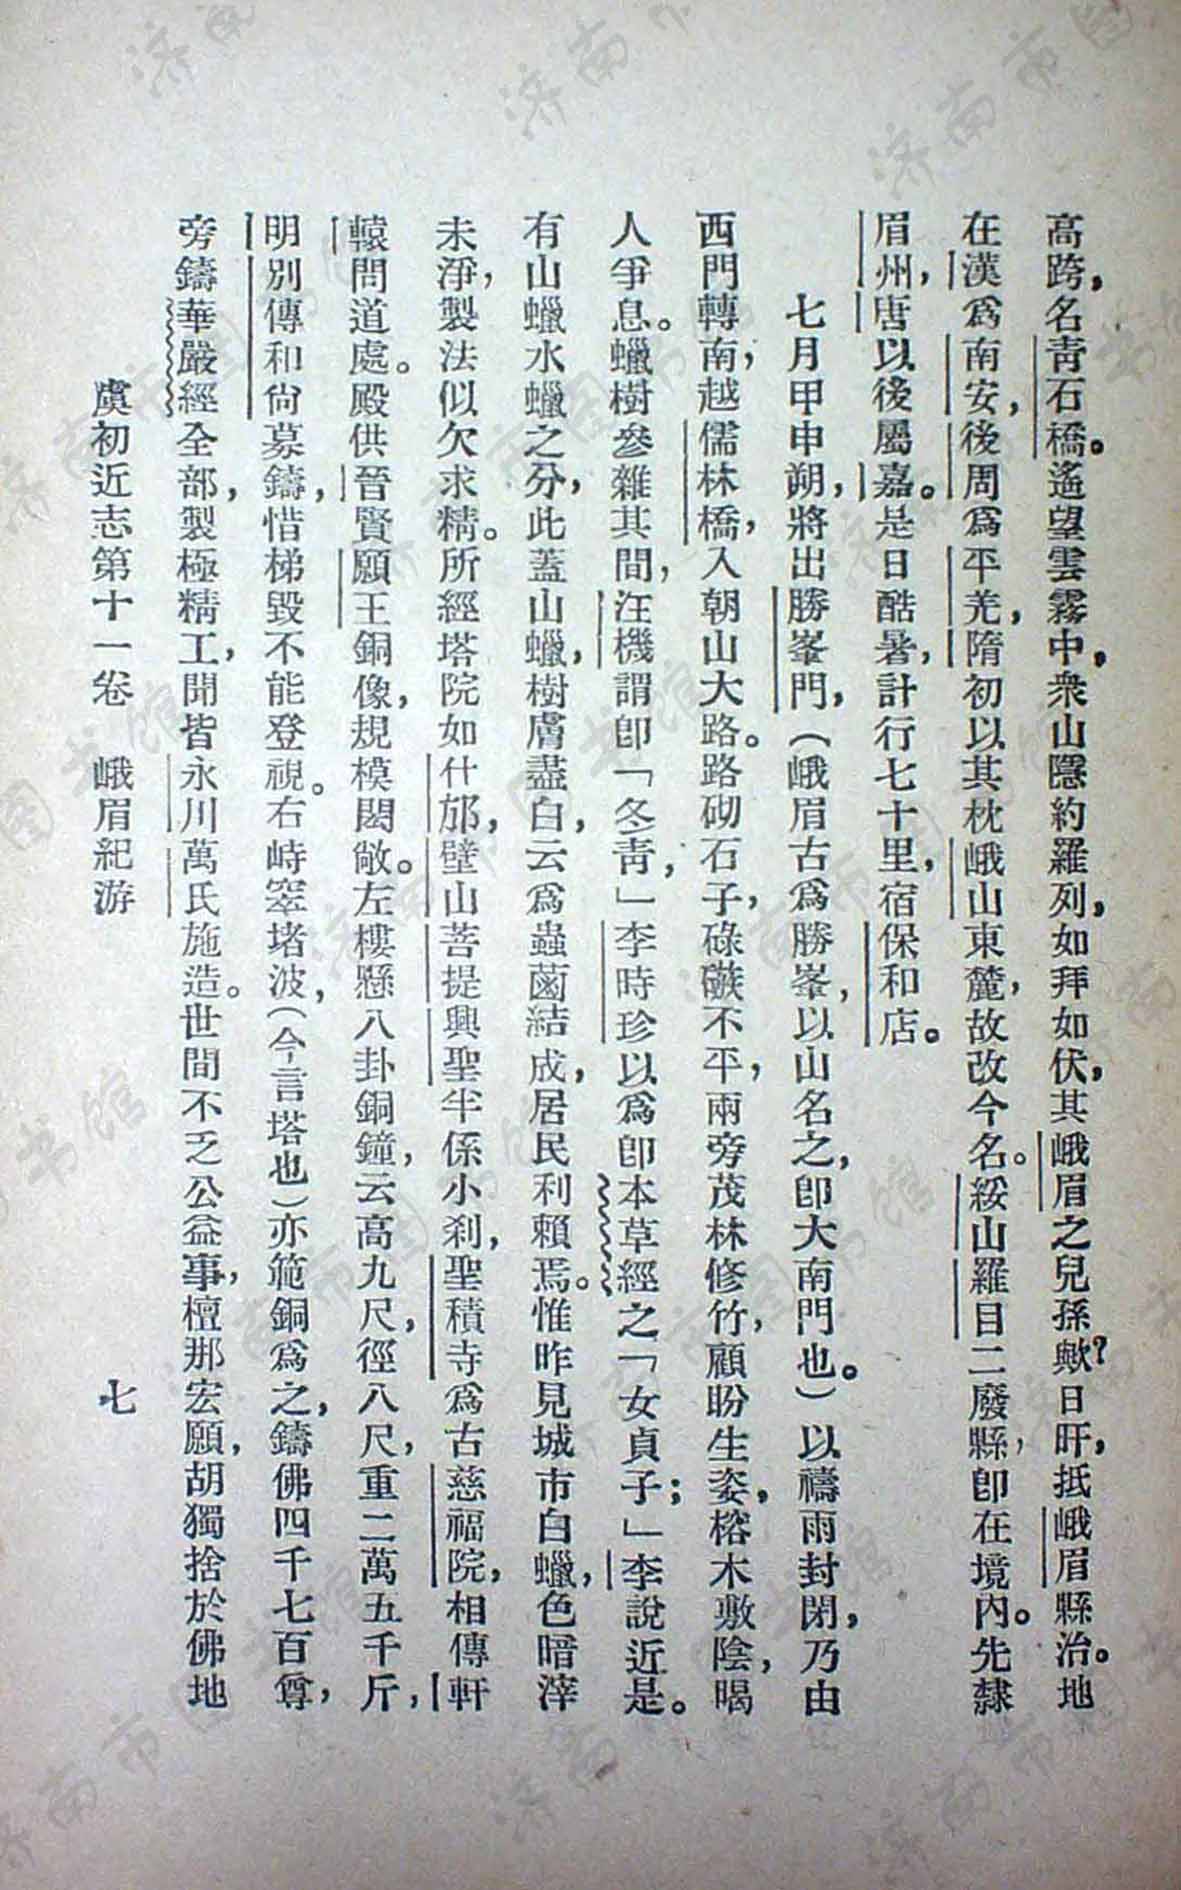 高跨，名青石橋。遙望雲霧中，衆山隱約羅列，如拜如伏，其峨眉之兒孫歟？日旰，抵峨眉縣治。地
在漢爲南安，後周爲平羌，隋初以其枕峨山東麓，故改今名。綏山羅目二廢縣，卽在境內。先隸
眉州，唐以後屬嘉。是日酷暑，計行七十里，宿保和店。
七月甲申朔，將出勝峯門，（峨眉古爲勝峯，以山名之，卽大南門也。）以禱雨封閉，乃由
西門轉南，越儒林橋，入朝山大路。路砌石子，碌礟不平，兩旁茂林修竹，顧盼生姿，榕木敷陰，暍
人爭息。蠟樹參雜其間，汪機謂卽「冬青，」李時珍以爲卽本草經之「女貞子；」李說近是。
有山蠟水蠟之分，此蓋山蠟，樹膚盡白，云爲蟲薗結成，居民利賴焉。惟昨見城市白蠟，色暗滓
未淨，製法似欠求精。所經塔院如什邡，壁山菩提興聖半係小刹，聖積寺爲古慈福院，相傳軒
轅問道處。殿供晉賢願王銅像，規模閎敞。左樓懸八卦銅鐘，云高九尺，徑八尺，重二萬五千斤，
明別傳和尙募鑄，惜梯毀不能登視。右峙窣堵波，（今言塔也）亦範銅爲之，鑄佛四千七百尊，
旁鑄華嚴經全部，製極精工，聞皆永川萬氏施造。世間不乏公益事，檀那宏願，胡獨捨於佛地
虞初近志第十一卷　峨眉紀游　七
济南市图书馆